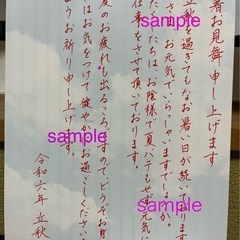 暑お見舞申し上げます
立秋を過ぎてもなお暑い日が続いております
お元気でいらっしゃいますでしょうか
たちは、お陰様で夏バテもせず元気に
仕事をさせて頂いております。
夏の疲れも出るころですので、どうぞお身
はお気をつけて健やかにお過ごしください
ようお祈り申し上げます。
令和六年 立秋
sample
sample
sample
sample